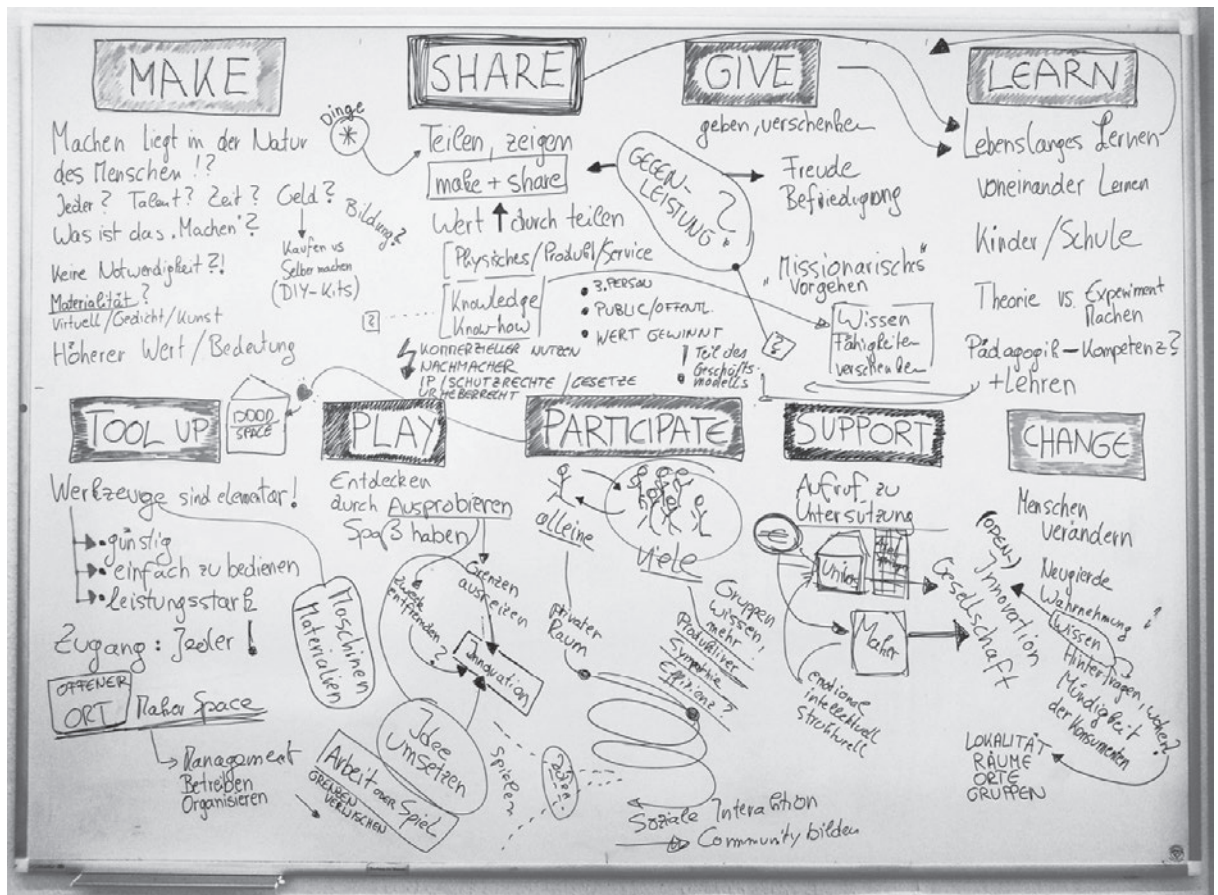 MAKE
Machen liegt in der Natur
des Menschen !?
Jeder? Talent? Zeit? Geld?
Bildung?
Was ist das „Machen"?
Kaufen vs
Selber machen
(DIY-Kits)
Keine Notwendigkeit?!
Materialität?
Virtuell/Gedicht/Kunst
Höherer Wert/Bedeutung
Dinge
*
SHARE
Teilen, zeigen
make + share
Wert ↑ durch teilen
Physisches/Produkt/Service
Knowledge
Know-how
?
3.PERSON
PUBLIC/ÖFFENTL.
WERT GEWINNT
KOMMERZIELLER NUTZEN
NACHMACHER
IP/SCHUTZRECHTE/GESETZE
URHEBERRECHT
! Teil des
Geschäfts-
modells
GIVE
geben, verschenken
GEGEN-
LEISTUNG
?
Freude
Befriedigung
„Missionarisches"
Vorgehen
Wissen
Fähigkeiten
verschenken
?
LEARN
Lebenslanges Lernen
voneinander Lernen
Kinder/Schule
Theorie vs. Experiment
Machen
Pädagogik-Kompetenz?
+Lehren
TOOL UP
SPACE
Werkzeuge sind elementar!
günstig
einfach zu bedienen
leistungsstark
Zugang: Jeder!
OFFENER
ORT
Maker Space
Management
Betreiben
Organisieren
Maschinen
Materialien
PLAY
Entdecken
durch Ausprobieren
Spaß haben
Zweck
entfremden?
Grenzen
ausreizen
Innovation
Idee
Umsetzen
Arbeit oder Spiel
GRENZEN
VERWISCHEN
Spielen
PARTICIPATE
alleine
Viele
privater
Raum
Gruppen
wissen
mehr
Produktiver
Sympathie
Effizienz?
Soziale Interaktion
Community bilden
SUPPORT
Aufruf zu
Untersützung
€
Univers
Maker
emotional
intellektuell
strukturell
Gesellschaft
(OPEN-)
Innovation
CHANGE
Menschen
verändern
Neugierde
Wahrnehmung
Wissen
Hinterfragen, woher?
Mündigkeit
der Konsumenten
LOKALITÄT
RÄUME
ORTE
GRUPPEN